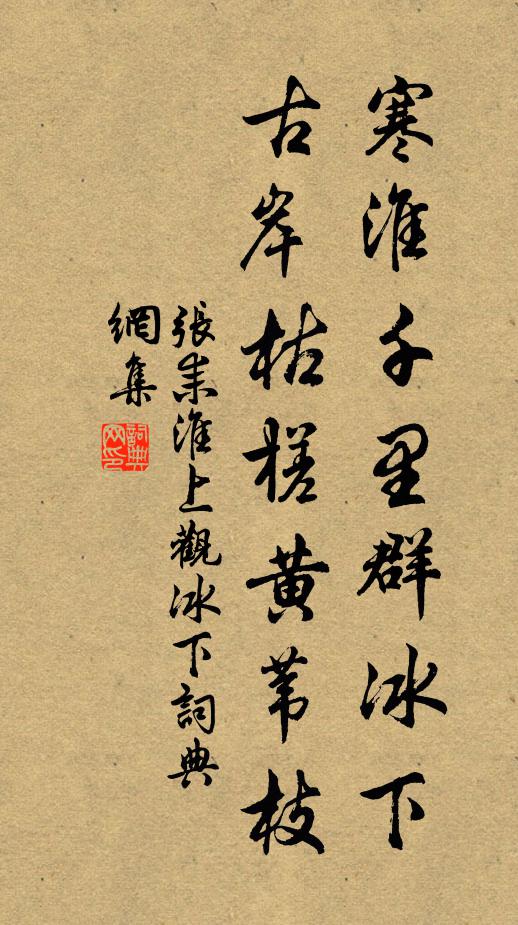 寒淮千里群冰下
古岸枯槎黄苇枝
張耒淮上觀冰下詞典
網集
詞典網印